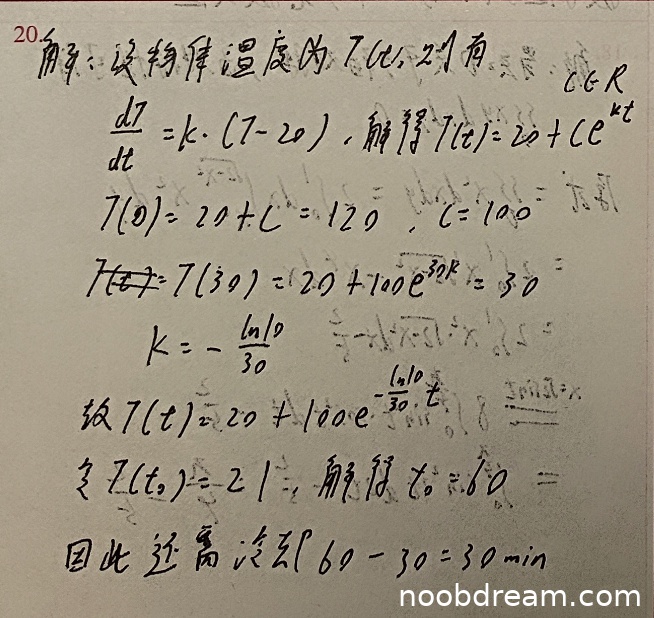 20.
解：设物体温度为 T(t)，则有
dT/dt = k·(T-20)，解得 T(t)=20+Ce^{kt} C∈R
T(0)=20+C=120，C=100
T(30)=20+100e^{30k}=30
k=-ln10/30
故 T(t)=20+100e^{-ln10/30 t}
令 T(t₀)=21，解得 t₀=60
因此还需冷却 60-30=30min
noobdream.com